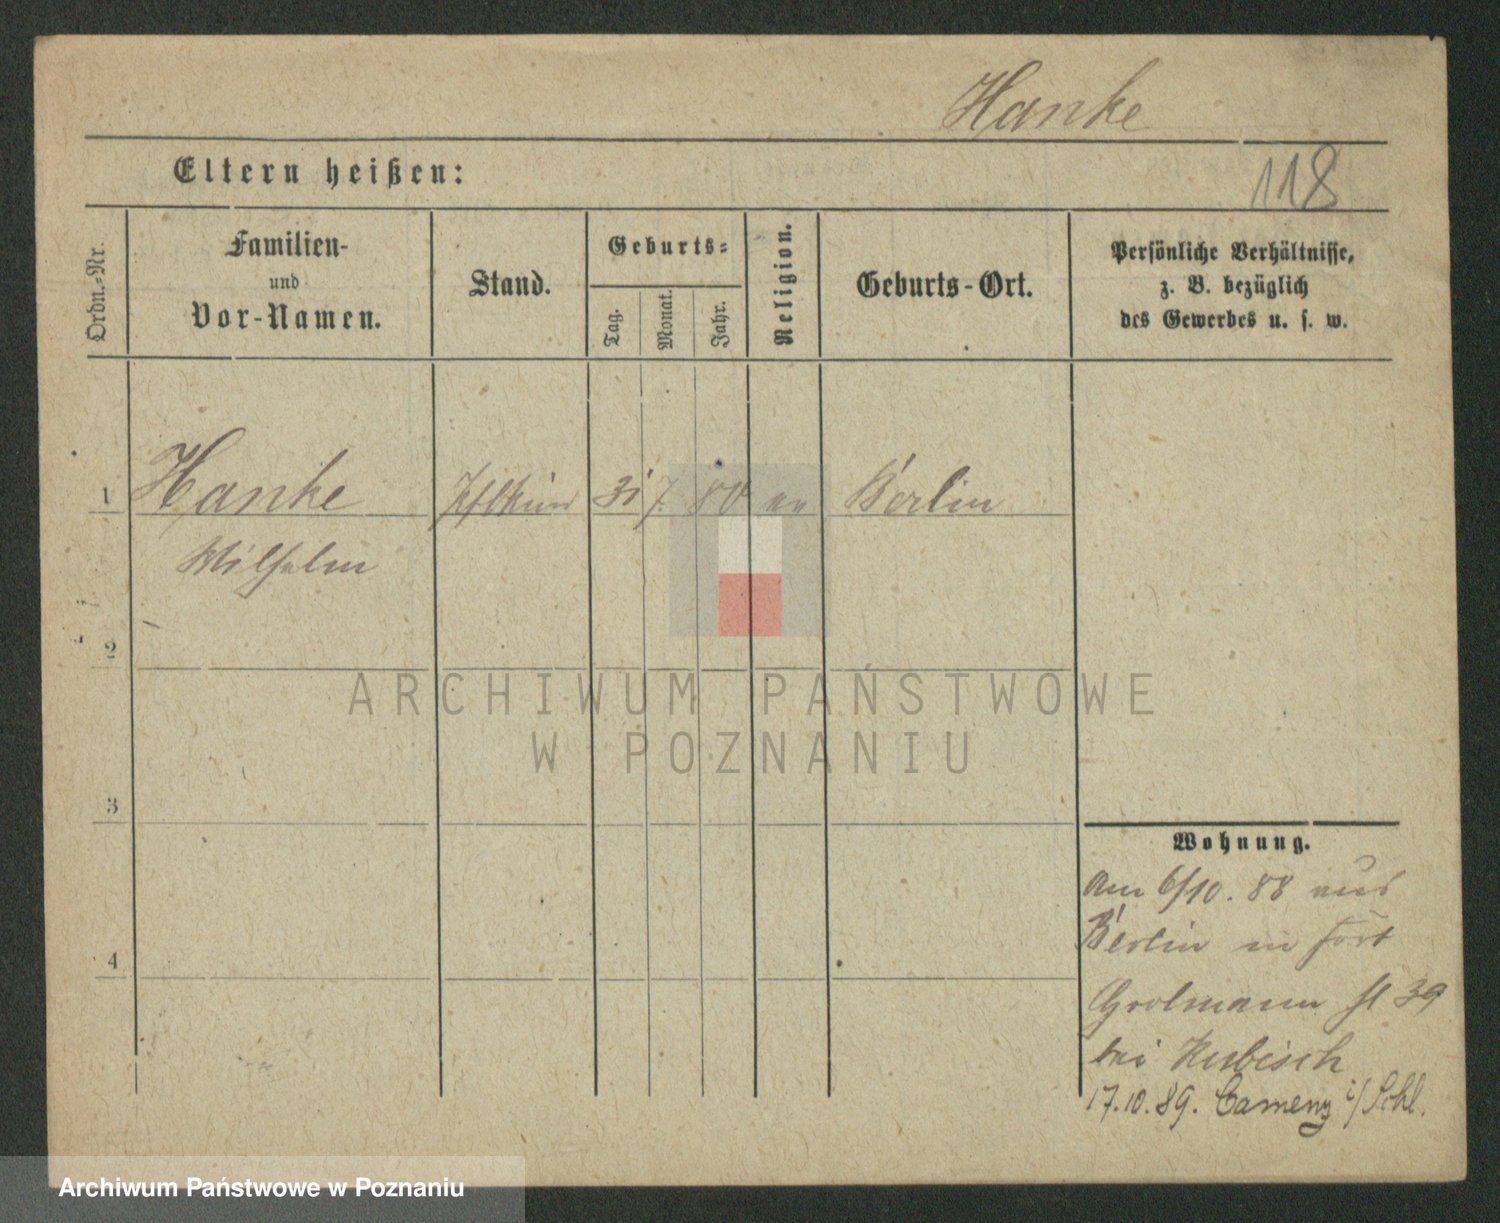 Hanke
118
Eltern heißen:
Ordn.-Nr.
Familien-
und
Vor-Namen.
Stand.
Geburts-
Tag.
Monat.
Jahr.
Religion.
Geburts-Ort.
Persönliche Verhältnisse,
z. B. bezüglich
des Gewerbes u. s. w.
1 Hanke 31 7. 80 ev Berlin
Wilhelm
2
3
4
Wohnung.
Am 6/10. 88 aus
Berlin in Fort
Grolmann St 39
bei Kubisch
17.10.89. Camenz i/Schl.
ARCHIWUM PAŃSTWOWE
W POZNANIU
Archiwum Państwowe w Poznaniu